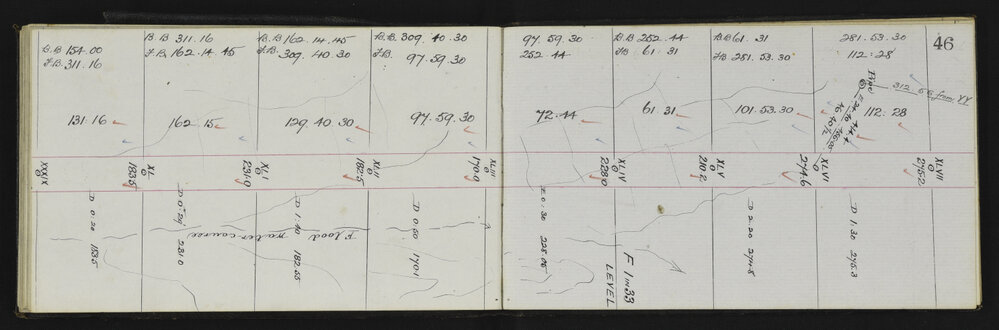 B.B 154.00
F.B. 311.16
B.B 311.16
F.B. 162.14.45
B.B. 162.14.45
F.B. 309.40.30
B.B. 309.40.30
F.B. 97.59.30
97.59.30
252.44
B.B 252.44
FB 61.31
BB 61.31
FB 281.53.30
281.53.30
112.28
46
312.55 from YY
131.16
162.15
129.40.30
97.59.30
72.44
61.31
101.53.30
112.28
XXXIX
XL
183.5
XLI
231.0
XLII
182.5
XLIII
170.9
XLIV
228.0
XLV
210.2
XLVI
274.6
XLVII
275.2
D 0.20 183.5
231.0
D 1.40 182.55
Flood water course
D 0.50 170.1
E 0.30 228.05
F 1 in 33
LEVEL
D 2.20 274.8
D 1.30 275.3